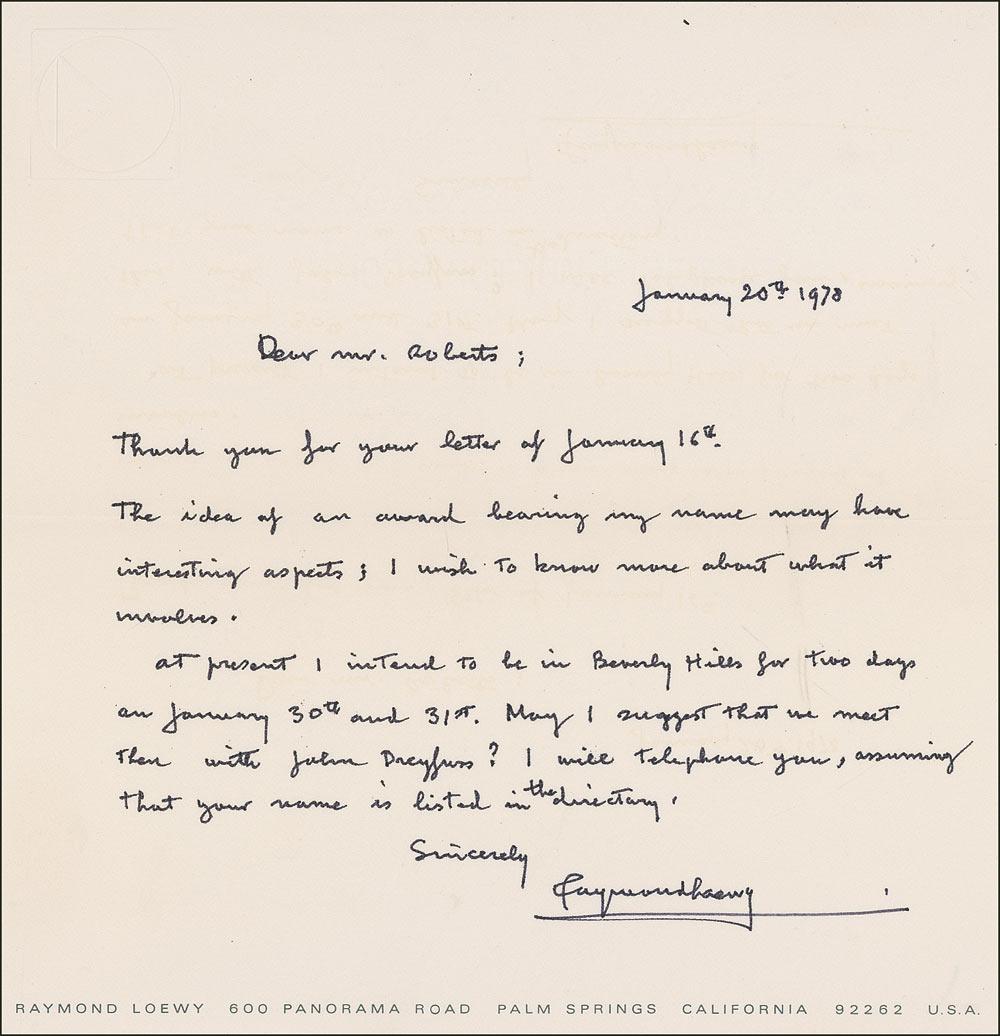 January 20th 1978
Dear Mr. Roberts;
Thank you for your letter of January 16th.
The idea of an award bearing my name may have
interesting aspects; I wish to know more about what it
involves.
At present I intend to be in Beverly Hills for two days
on January 30th and 31st. May I suggest that we meet
then with John Dreyfuss? I will telephone you, assuming
that your name is listed in the directory.
Sincerely
Raymond Loewy
RAYMOND LOEWY 600 PANORAMA ROAD PALM SPRINGS CALIFORNIA 92262 U.S.A.